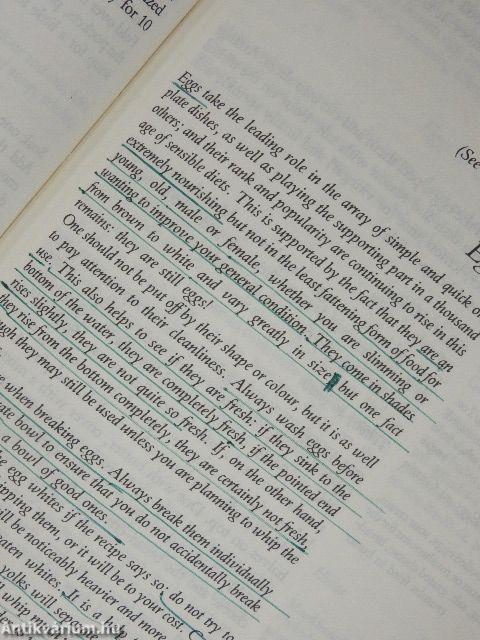 ized
y for 10
(See
E
Eggs take the leading role in the array of simple and quick
plate dishes, as well as playing the supporting part in a thousand
others, and their rank and popularity are continuing to rise in this
age of sensible diets. This is supported by the fact that they are an
extremely nourishing but not in the least fattening form of food for
young, old, male or female, whether you are slimming or
wanting to improve your general condition. They come in shades
from brown to white and vary greatly in size but one fact
remains: they are still eggs!
One should not be put off by their shape or colour, but it is as well
to pay attention to their cleanliness. Always wash eggs before
use. This also helps to see if they are fresh: if they sink to the
bottom of the water, they are completely fresh, if the pointed end
rises slightly, they are not quite so fresh. If, on the other hand,
they rise from the bottom completely, they are certainly not fresh,
ugh they may still be used unless you are planning to whip the
when breaking eggs. Always break them individually
ate bowl to ensure that you do not accidentally break
a bowl of good ones.
e egg whites if the recipe says so: do not try to
ipping them, or it will be to your cost.
ill be noticeably heavier and more
eaten whites. It is a
yolks will se
whip
Antikvárium.hu